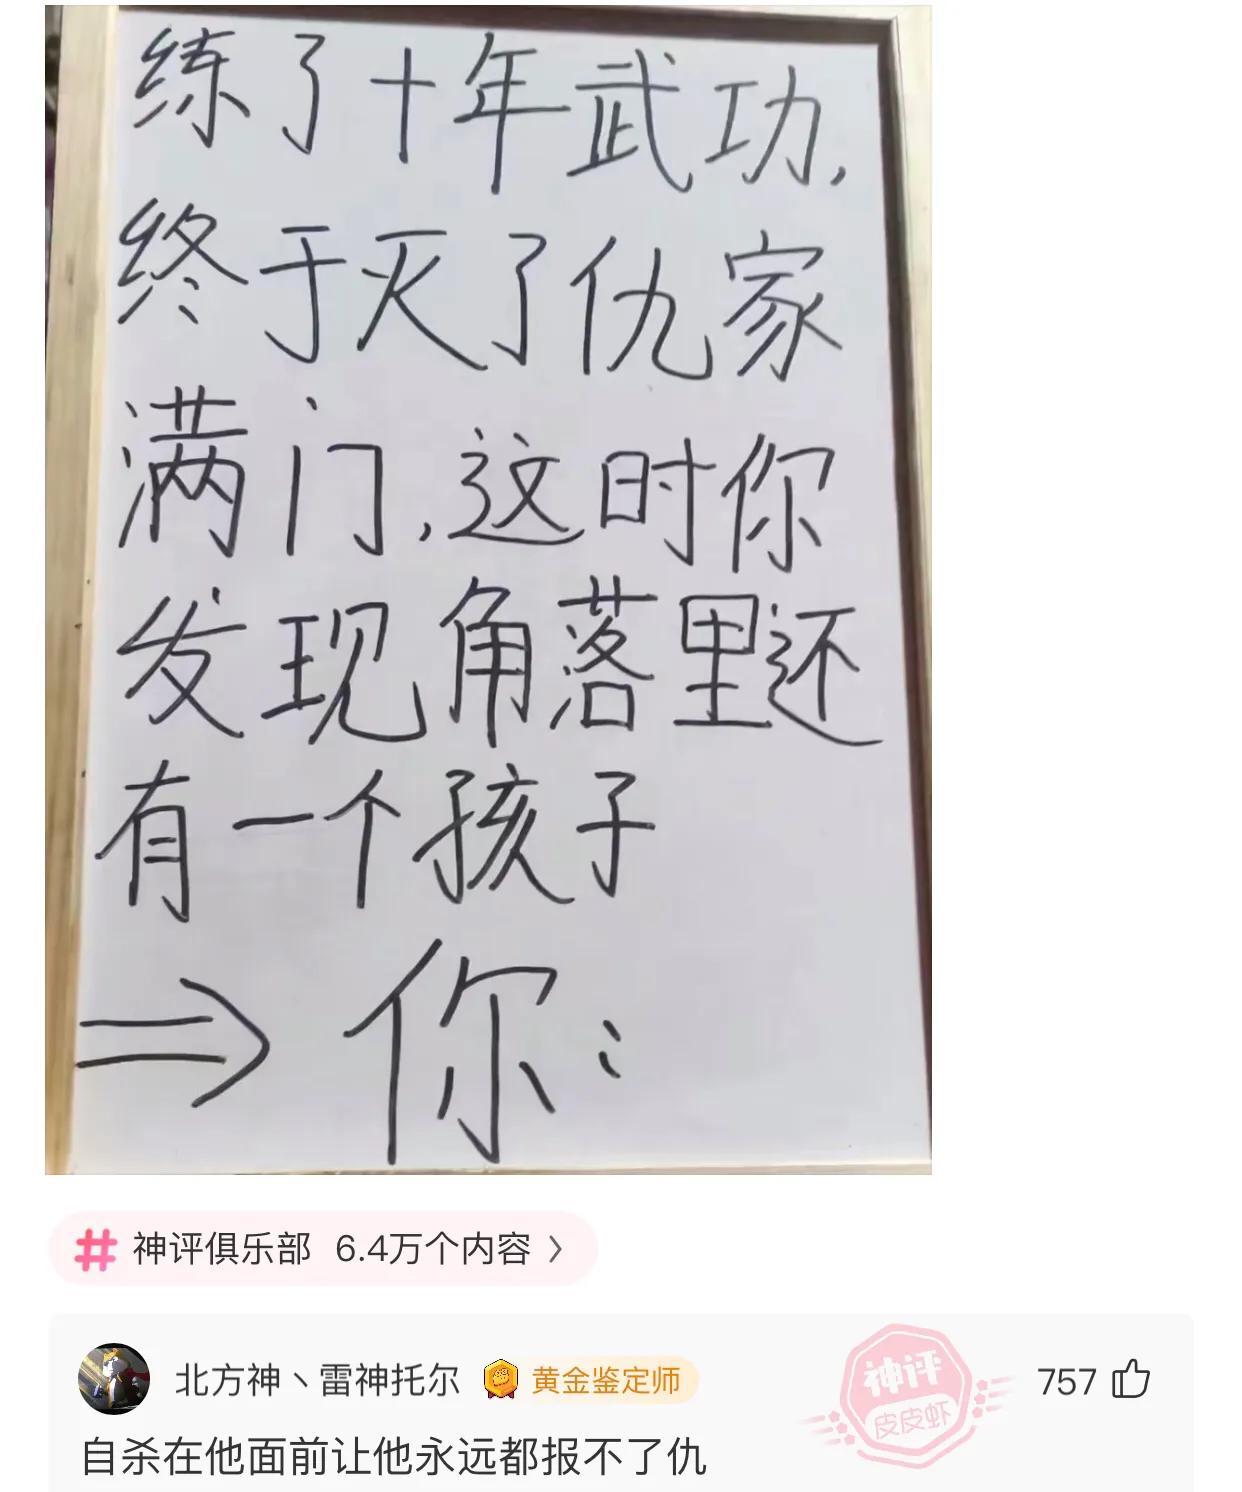 练了十年武功,
终于灭了仇家
满门,这时你
发现角落里还
有一个孩子
⇒ 你:
# 神评俱乐部 6.4万个内容 >
北方神丶雷神托尔 黄金鉴定师 神评 皮皮虾 757
自杀在他面前让他永远都报不了仇